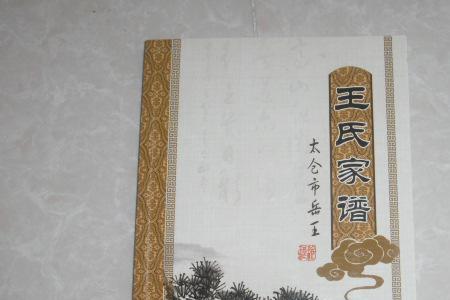 王氏家谱
太仓市岳王